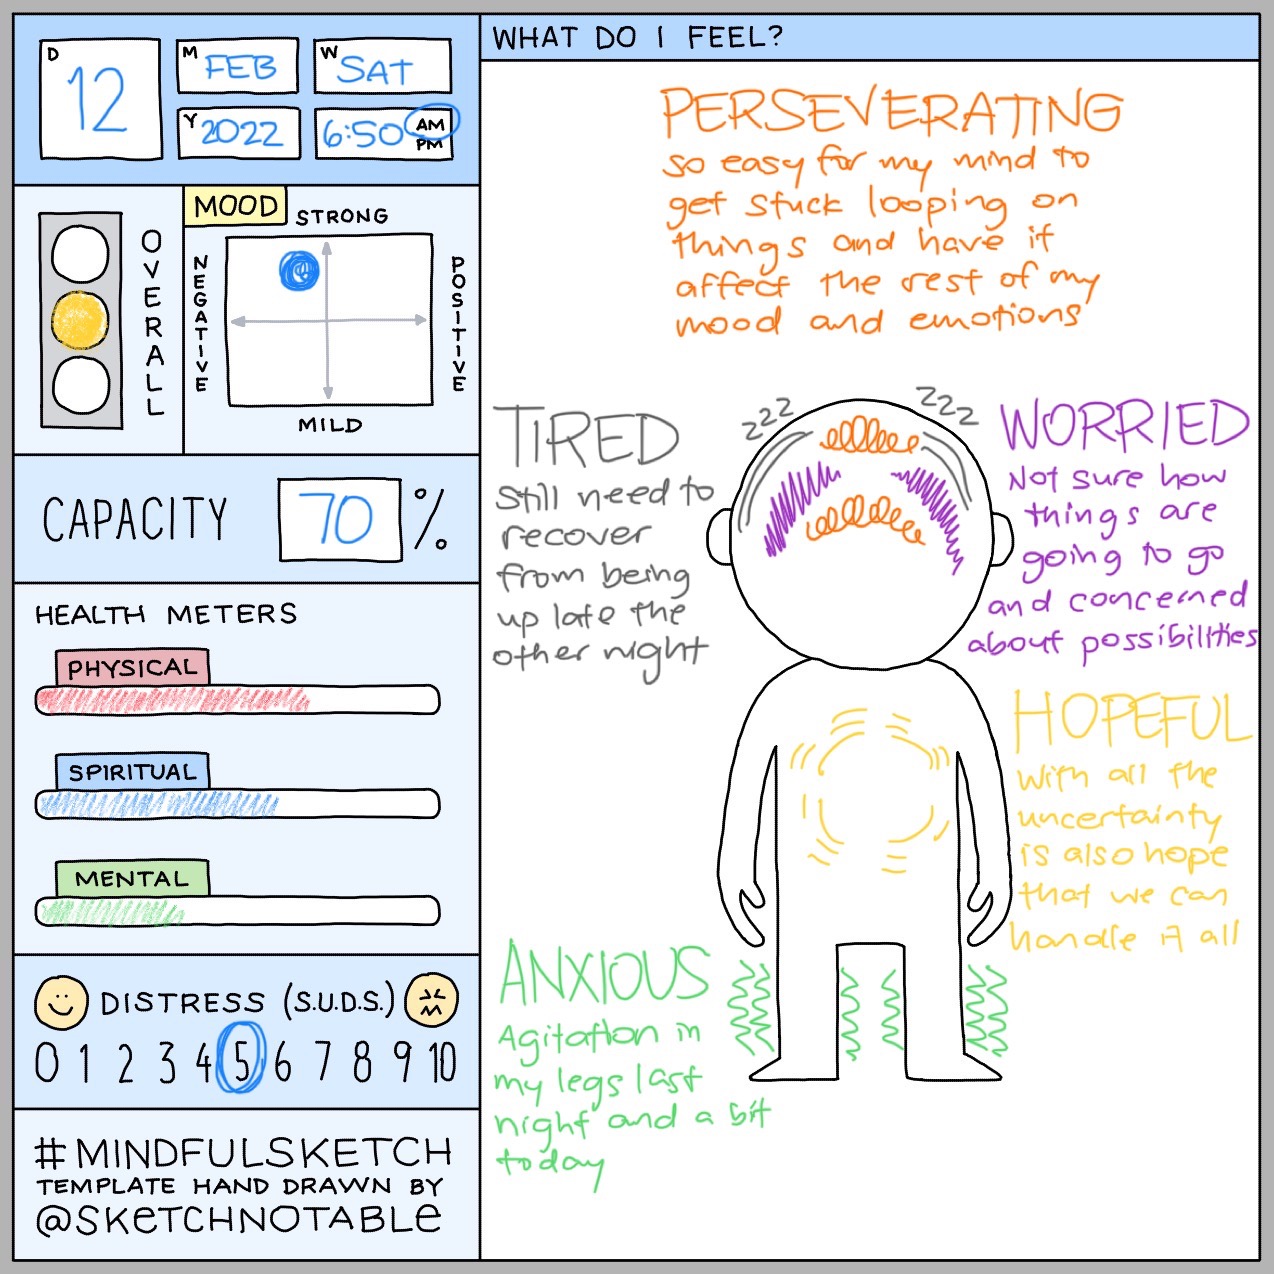 D
12
M
FEB
W
SAT
Y
2022
6:50 AM
PM
OVERALL
MOOD
STRONG
NEGATIVE
POSITIVE
MILD
CAPACITY 70 %
HEALTH METERS
PHYSICAL
SPIRITUAL
MENTAL
DISTRESS (S.U.D.S.)
0 1 2 3 4 5 6 7 8 9 10
#MINDFULSKETCH
TEMPLATE HAND DRAWN BY
@SKETCHNOTABLE
WHAT DO I FEEL?
PERSEVERATING
so easy for my mind to
get stuck looping on
things and have it
affect the rest of my
mood and emotions
TIRED
Still need to
recover
from being
up late the
other night
zzz
zzz
WORRIED
Not sure how
things are
going to go
and concerned
about possibilities
HOPEFUL
With all the
uncertainty
is also hope
that we can
handle it all
ANXIOUS
Agitation in
my legs last
night and a bit
today